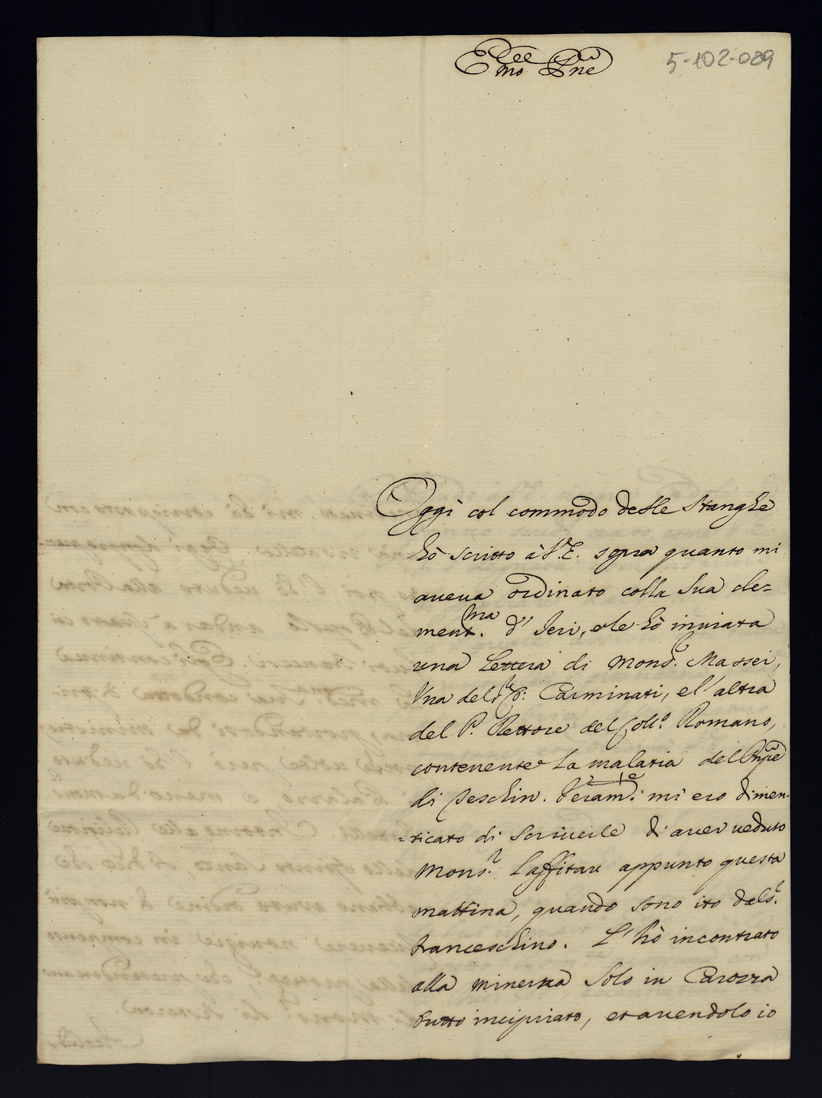 Emo Pne
5-102-089
Oggi col commodo delle Stanghe
hò scritto à V.E. sopra quanto mi
aveva ordinato colla sua cle=
ment.ma d' Ieri, e le hò inviata
una Lettera di Mons.r Massei,
Una del Carminati, e l'altra
del P. Rettore del Coll.o Romano,
contenente la malatia del
di Peschin. Veram.te mi ero dimen-
=ticato di scriverle di aver veduto
Mons.r Laffitau appunto questa
mattina, quando sono ito dal S.r
Franceschino. L'hò incontrato
alla Minerva solo in Carozza
tutto incipriato, et avendolo io